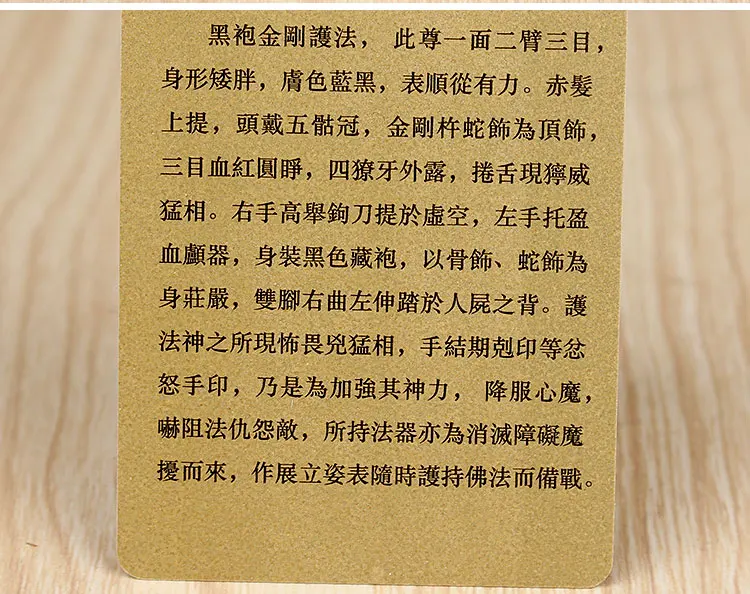 黑袍金剛護法，此尊一面二臂三目，
身形矮胖，膚色藍黑，表順從有力。赤髮
上提，頭戴五骷冠，金剛杵蛇飾為頂飾，
三目血紅圓睜，四獠牙外露，捲舌現獰威
猛相。右手高舉鉤刀提於虛空，左手托盈
血顱器，身裝黑色藏袍，以骨飾、蛇飾為
身莊嚴，雙腳右曲左伸踏於人屍之背。護
法神之所現怖畏兇猛相，手結期剋印等忿
怒手印，乃是為加強其神力，降服心魔，
嚇阻法仇怨敵，所持法器亦為消滅障礙魔
擾而來，作展立姿表隨時護持佛法而備戰。